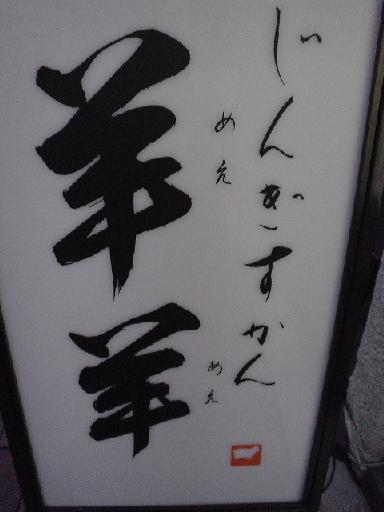 じんぎすかん
羊羊
めえ
めえ